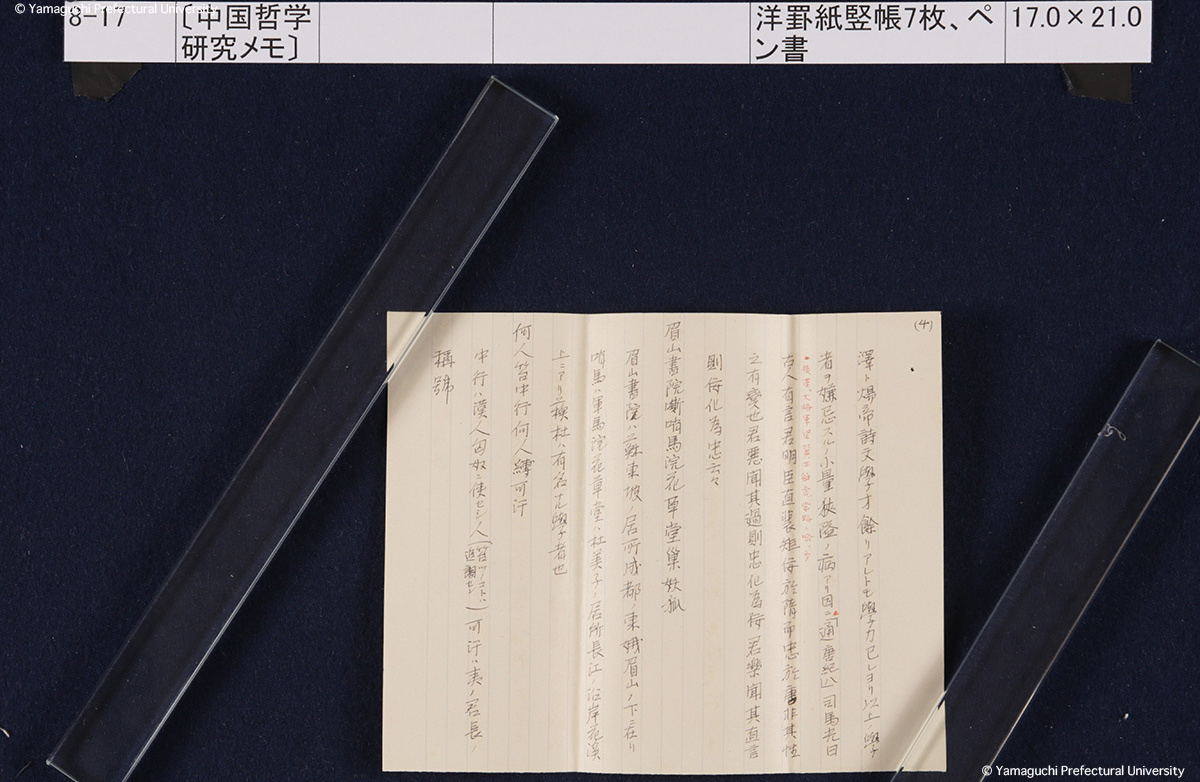 © Yamaguchi Prefectural University
8-17
〔中国哲学
研究メモ〕
洋罫紙竪帳7枚、ペ
ン書
17.0×21.0
(4)
澤ト煬帝詩文學才餘リアレトモ學力己レヨリ以上ノ學
者ヲ嫌忌スルノ小量狹隘ノ病アリ因ニ「通」唐紀八 司馬光曰
古人有言君明臣直裴矩佞於隋而忠於唐非其性
之有變也君悪聞其過則忠化為佞君樂聞其直言
則佞化為忠云々
眉山書院嘶哨馬浣花草堂巢奴狐
眉山書院ハ蘇東坡ノ居所成都ノ東娥眉山ノ下ニ在リ
哨馬ハ軍馬浣花草堂ハ杜美子ノ居所長江ノ沿岸花溪
上ニアリ 杜ハ有名ナル學者也
何人笞中行何人縛可汗
中行ハ漢人匈奴ニ使セシ人 可汗ハ夷ノ君長ノ
稱號
© Yamaguchi Prefectural University